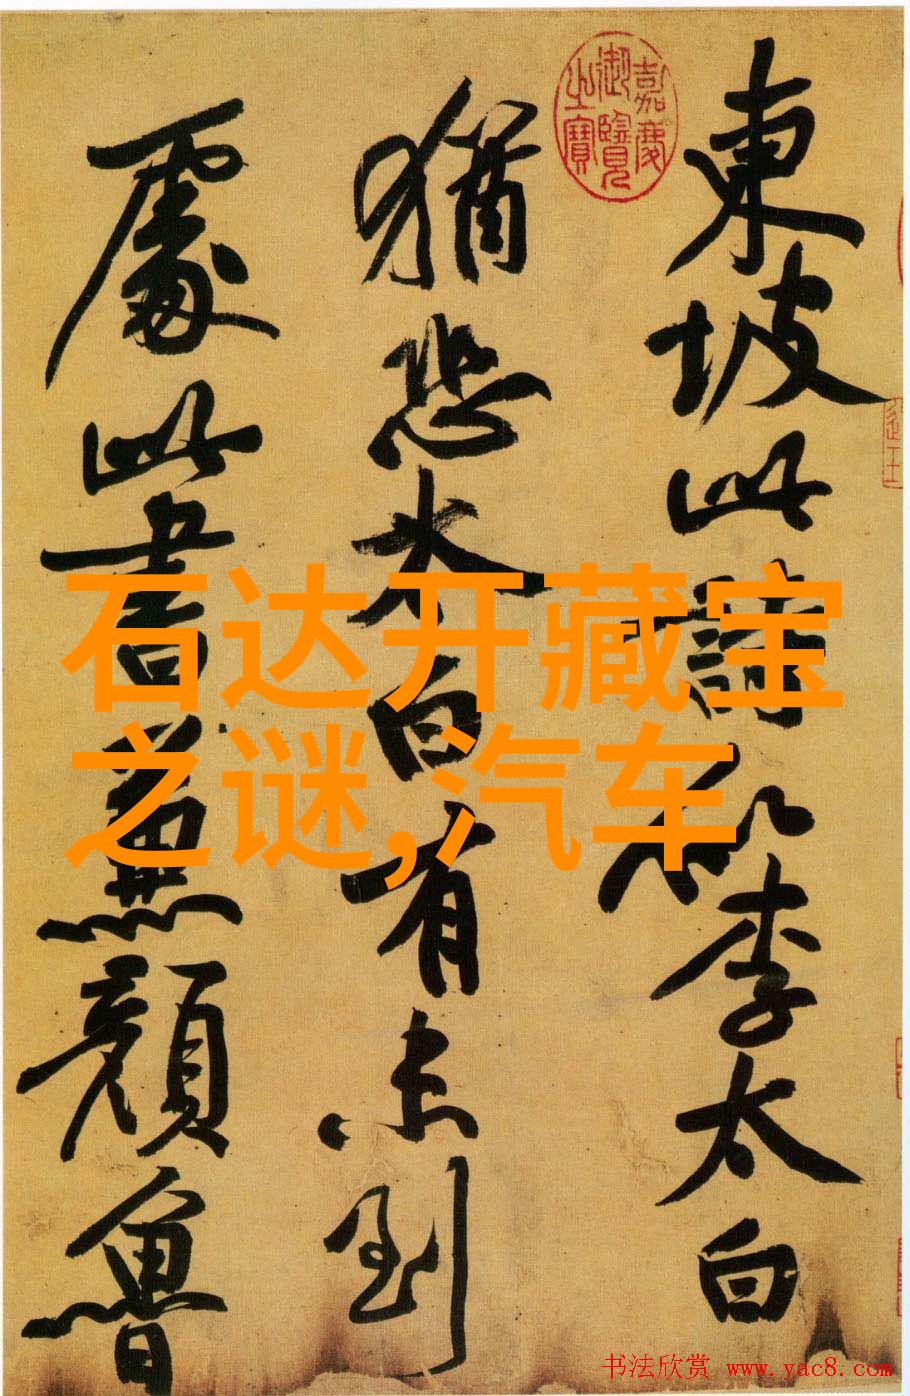 東坡此詩似李太白
嘉慶御覽之寶
猶恐太白有未到
處此書兼顏魯
石达开藏宝
之谜,汽车
书法欣赏 www.yac8.com